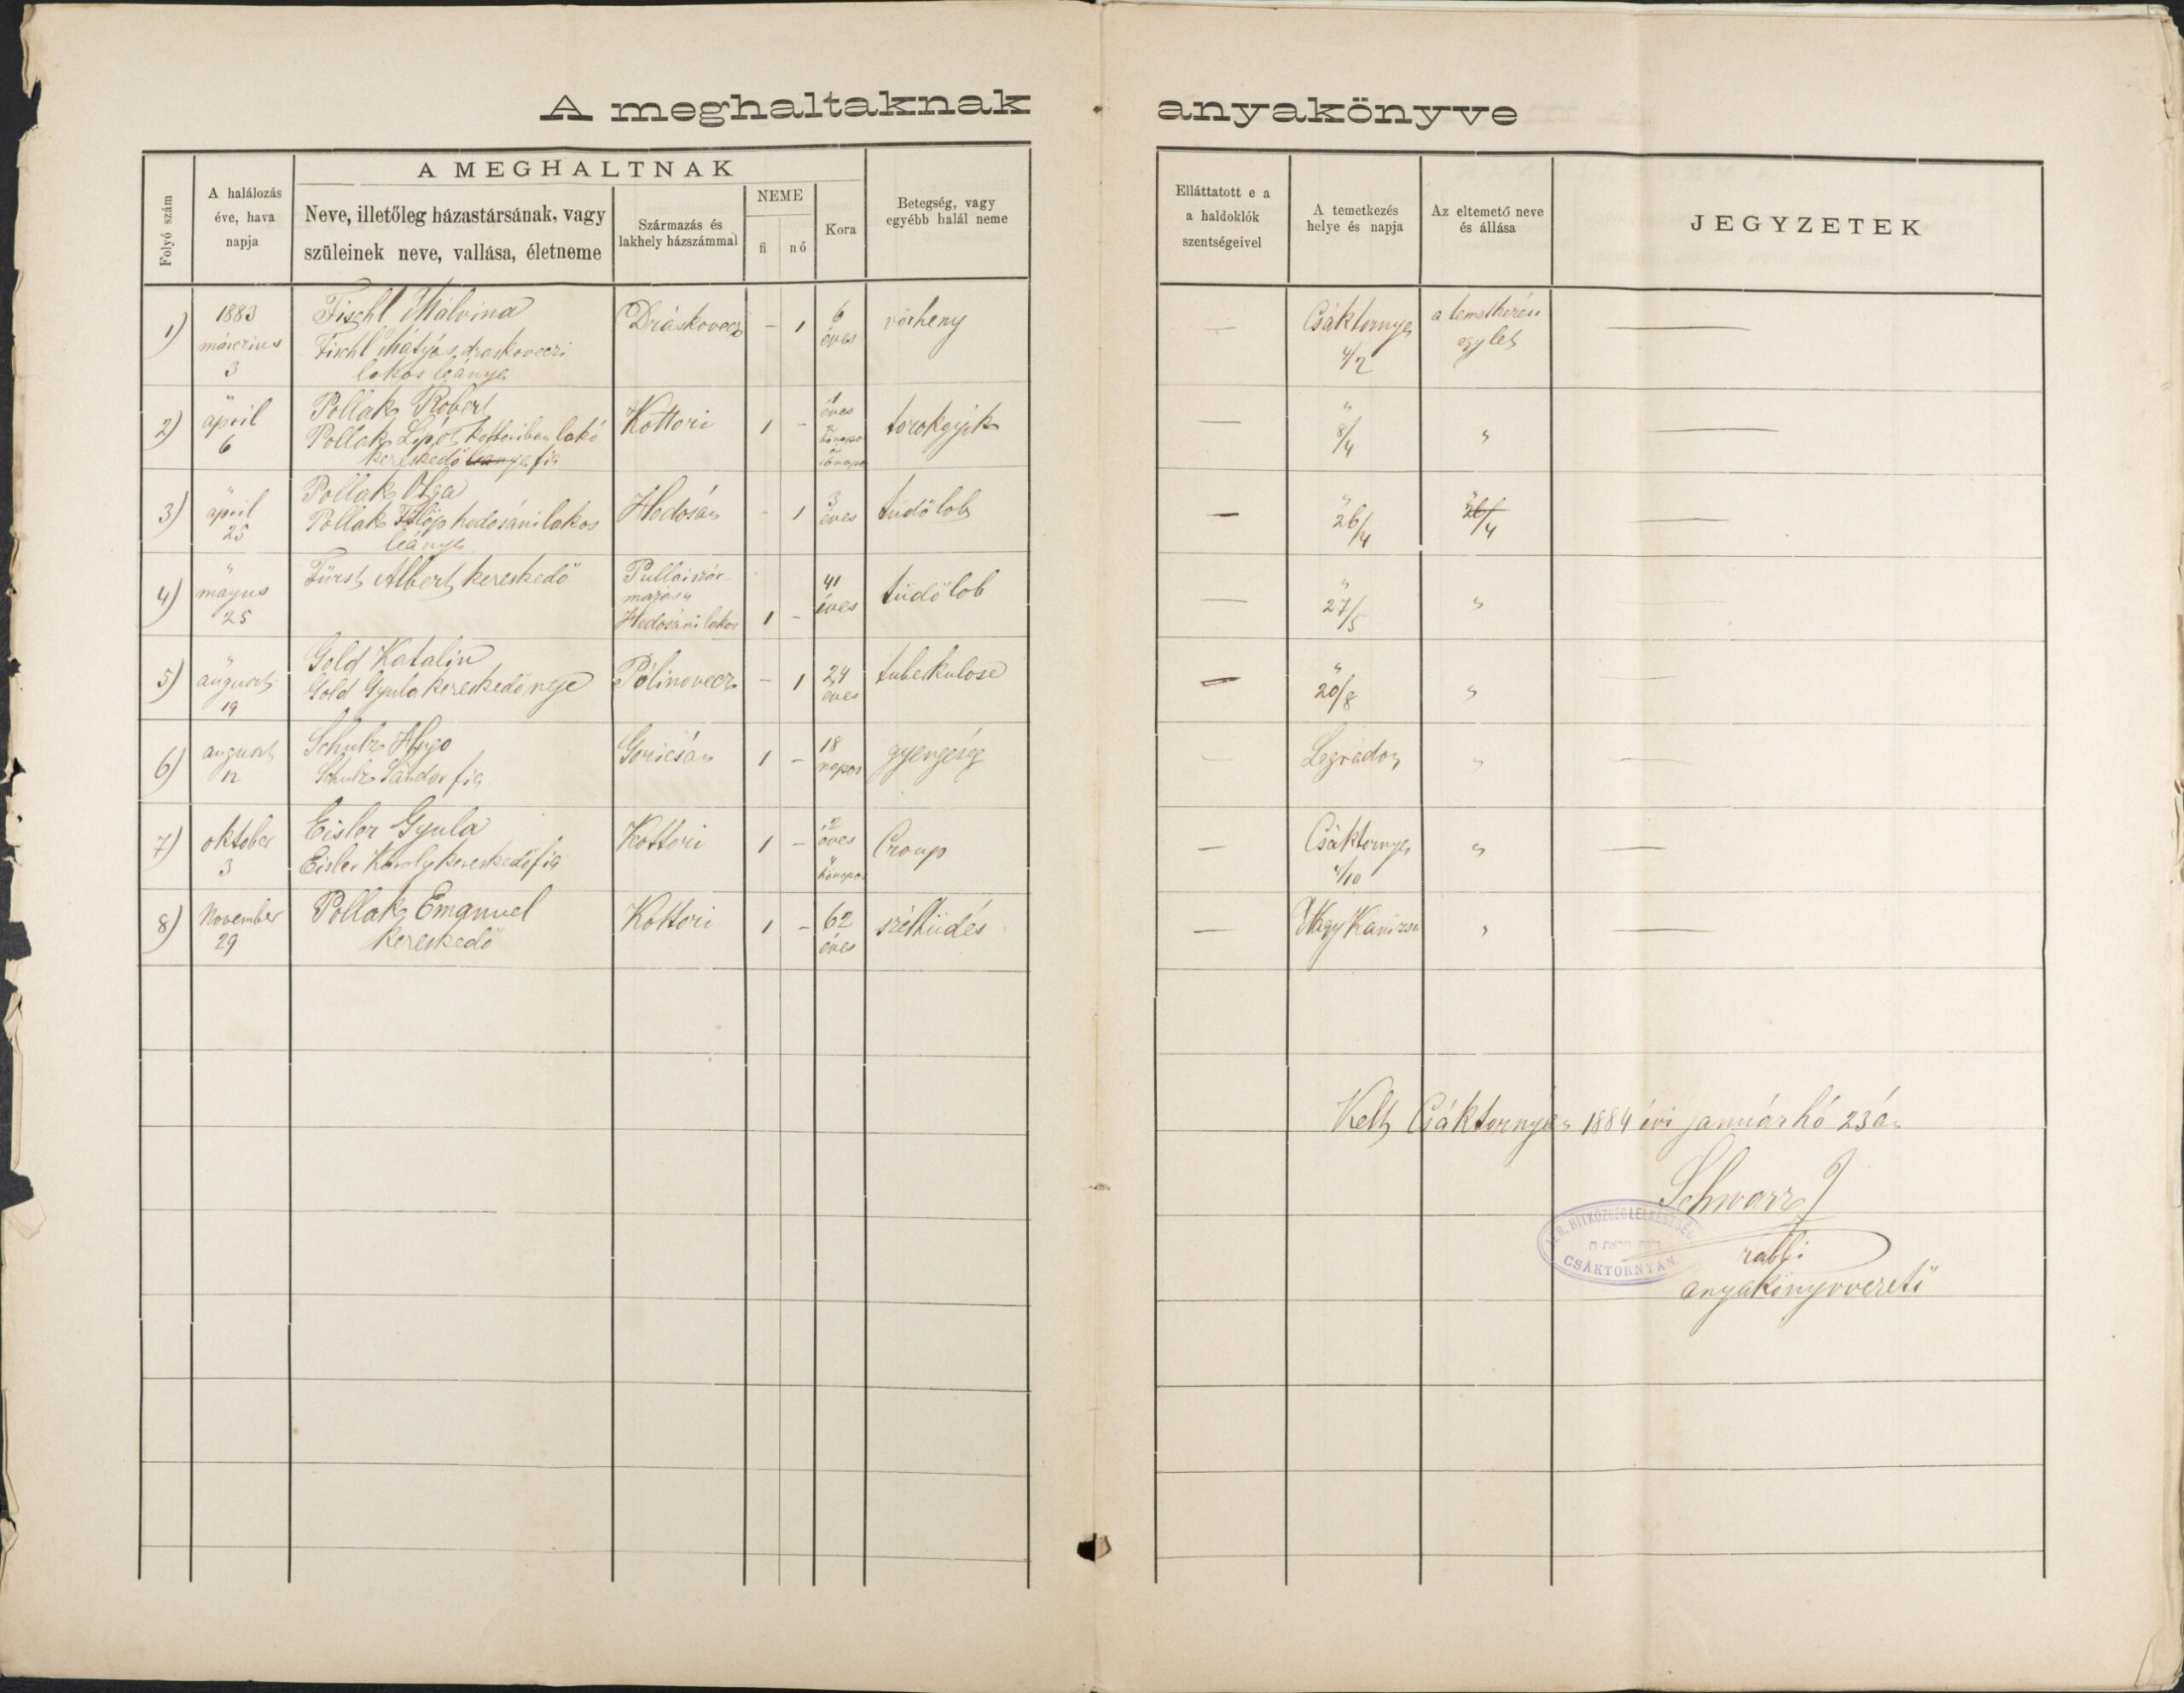 A meghaltaknak anyakönyve
Folyó szám
A halálozás
éve, hava
napja
A MEGHALTNAK
Neve, illetőleg házastársának, vagy
szüleinek neve, vallása, életneme
Származás és
lakhely házszámmal
NEME
fi nő
Kora
Betegség, vagy
egyébb halál neme
Elláttatott e a
a haldoklók
szentségeivel
A temetkezés
helye és napja
Az eltemető neve
és állása
JEGYZETEK
1)
1883
március
3
Fischl Malvina
Fischl Mátyás draskoveczi
lakos leánya
Dráskovecz
– 1
6
éves
vörheny
—
Csáktornya
4/2
a temetkezési
egylet
—
2)
"
april
6
Pollak Robert
Pollak Lipót kottoriban lakó
kereskedő leanya fia
Kottori
1 –
1
éves
2
hónapos
torokgyik
—
"
8/4
"
—
3)
"
april
25
Pollak Olga
Pollak Fülöp hodosáni lakos
leánya
Hodosán
– 1
3
éves
tüdőlob
—
"
26/4
"
26/4
—
4)
"
május
25
Fürst Albert kereskedő
Pullai szár-
mazásu
Hodosáni lakos
1 –
41
éves
tüdőlob
—
"
27/5
"
—
5)
"
august
19
Gold Katalin
Gold Gyula kereskedő neje
Pálinovecz
– 1
24
éves
tubekulose
—
"
20/8
"
6)
august
12
Schulz Hugo
Schulz Sándor fia
Goricsán
1 –
18
napos
gyengeség
—
Legrádon
"
—
7)
oktober
3
Eisler Gyula
Eisler Karoly kereskedő fia
Kottori
1 –
2
éves
hónapos
Croup
—
Csáktornya
4/10
"
—
8)
November
29
Pollak Emanuel
kereskedő
Kottori
1 –
62
éves
szélhüdés
—
Nagy Kanizsa
"
—
Kelt Csáktornyán 1884 évi január hó 23án
Schwarz J
rabbi
anyakönyvvezető
IZR. HITKÖZSÉG LELKÉSZSÉG
CSÁKTORNYÁN